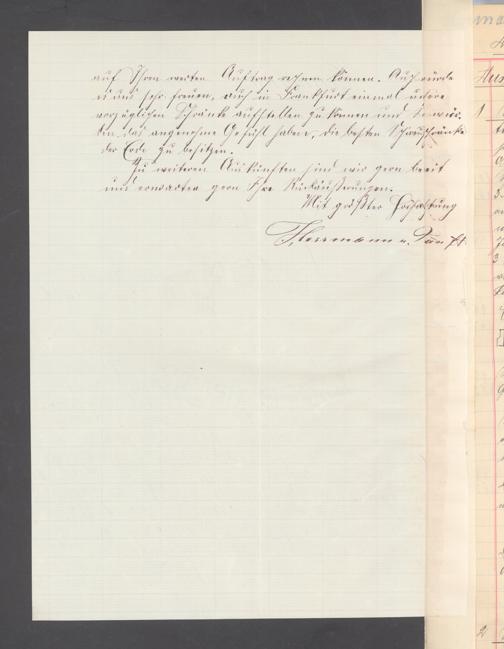 auf Ihren werten Auftrag rechnen können. Auch würde
es uns sehr freuen, auch in Frankfurt einmal unsere
vorzüglichen Schränke aufstellen zu können und Sie würden
das angenehme Gefühl haben, die besten Schauschränke
der Erde zu besitzen.
Zu weiteren Auskünften sind wir gern bereit
und erwarten gern Ihre Rückäußerungen.
Mit größter Hochachtung